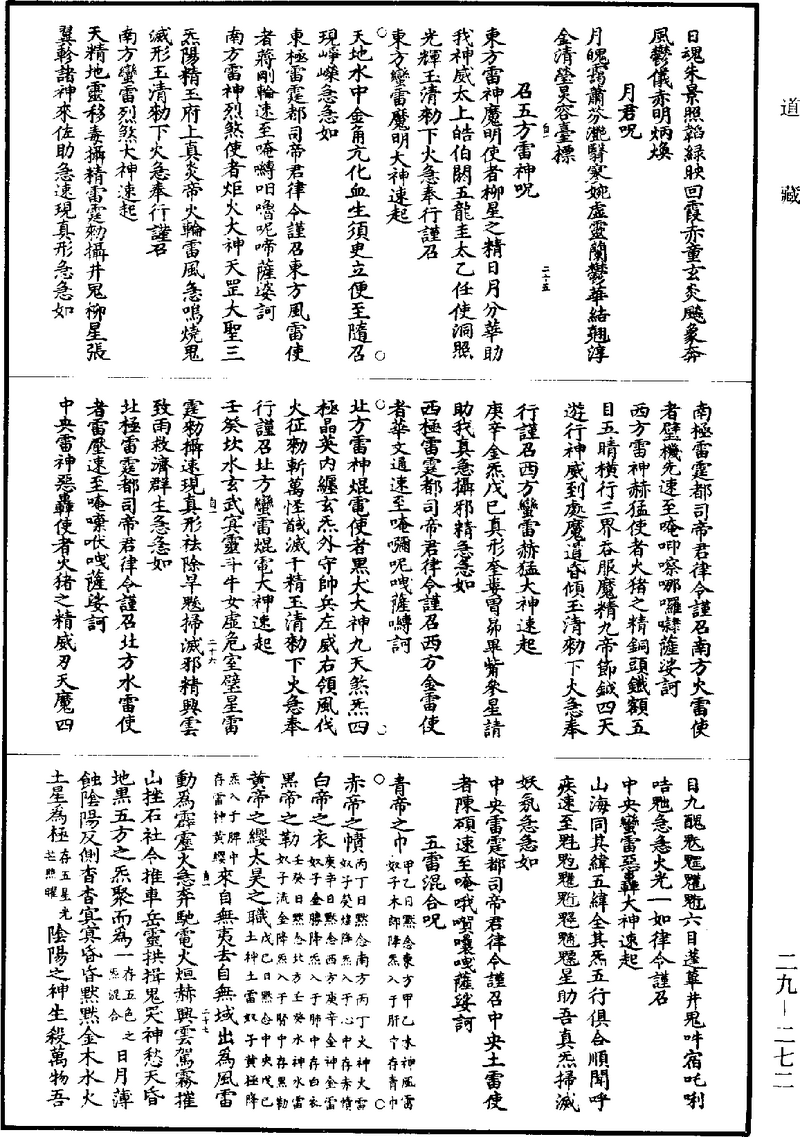 道藏
日魂朱景照韜綠映回霞赤童玄炎飈象奔
風鬱儀赤明炳煥
月君呪
月魄㬌蕭芬灔翳寥婉虛靈蘭鬱華結翹淳
金清瑩炅容臺標
召五方雷神呪
東方雷神魔明使者柳星之精日月分華助
我神威太上皓伯閼五龍圭太乙任使洞照
光輝玉清勑下火急奉行謹召
東方蠻雷魔明大神速起
天地水中金角亢化血生須史立便至隨召
現崢嶸急急如
東極雷霆都司帝君律令謹召東方風雷使
者蔣剛輪速至唵嚩呬嚕呢啼薩娑訶
南方雷神烈煞使者炬火大神天罡大聖三
炁陽精玉府上真炎帝火輪雷風急鳴燒鬼
滅形玉清勑下火急奉行謹召
南方蠻雷烈煞大神速起
天精地靈移毒攝精雷霆勑攝井鬼柳星張
翼軫諸神來佐助急速現真形急急如
南極雷霆都司帝君律令謹召南方火雷使
者壁機先速至唵吅嚓哪囉㘑薩娑訶
西方雷神赫猛使者火猪之精銅頭鐵額五
目五睛橫行三界吞服魔精九帝節鉞四天
遊行神威到處魔道昏傾玉清勑下火急奉
行謹召西方蠻雷赫猛大神速起
庚辛金炁戊巳真形奎婁胃昴畢觜參星請
助我真急攝邪精急急如
西極雷霆都司帝君律令謹召西方金雷使
者華文通速至唵嚩呢㖡薩嚩訶
北方雷神焜電使者黑犬大神九天煞炁四
極晶英内纏玄炁外守帥兵左威右領風伐
火征勑斬萬怪馘滅千精玉清勑下火急奉
行謹召北方蠻雷焜電大神速起
壬癸坎水玄武真靈斗牛女虛危室壁星雷
霆勑攝速現真形祛除旱魃掃滅邪精興雲
致雨救濟群生急急如
北極雷霆都司帝君律令謹召北方水雷使
者雷壓速至唵㗚吠㖡薩娑訶
中央雷神惡轟使者火猪之精威刃天魔四
目九醜魁𩲃魓魒魖六目蓬草井鬼吽宿吒唎
咭虺急急火光一如律令謹召
中央蠻雷惡轟大神速起
山海同其緯五緯全其炁五行俱合順聞呼
疾速至魁𩲃魓魒魖星助吾真炁掃滅
妖氛急急如
中央雷霆都司帝君律令謹召中央土雷使
者陳碩速至唵哦㗸嚷㖡薩娑訶
五雷混合呪
青帝之巾甲乙日黙念東方甲乙木神風雷奴子木郎降炁入于肝中存青巾
赤帝之幘丙丁日黙念南方丙丁火神火雷奴子癸煒降炁入于心中存赤幘
白帝之衣庚辛日黙念西方庚辛金神金雷奴子金勝降炁入于肺中存白衣
黑帝之勒壬癸日黙念北方壬癸水神水雷奴子流金降炁入于腎中存黑勒
黄帝之纓太昊之職戊巳日黙念中央戊巳土神土雷奴子黄極降炁入于脾中存雷神黄纓來自無夷去自無域出為風雷
動為霹靂火急奔馳電火烜赫興雲駕霧摧
山挫石社令推車岳靈拱揖鬼哭神愁天昏
地黑五方之炁聚而為一存五色之炁混合日月薄
蝕陰陽反側杳杳冥冥昏昏黙黙金木水火
土星為極存五星光芒照曜陰陽之神生殺萬物吾
二九—二七二